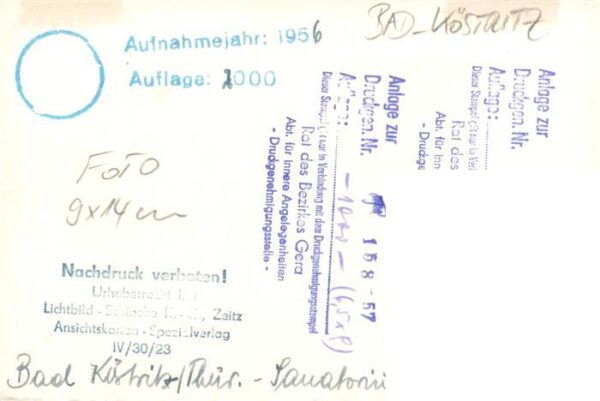 Aufnahmejahr: 1956
Auflage: 2000
BAD-KÖSTRITZ
FOTO
9x14 cm
Anlage zur
Druckgen. Nr. 158-57
Auflage: -1000- (6,5x9)
Dieser Stempel gilt nur in Verbindung mit dem Druckgenehmigungsstempel
Rat des Bezirkes Gera
Abt. für Innere Angelegenheiten
- Druckgenehmigungsstelle -
Anlage zur
Druckgen. Nr.
Auflage:
Dieser Stempel gilt nur in Ver
Rat des
Abt. für Inn
- Druckge
Nachdruck verboten!
Urheberrecht
Lichtbild - Zeitz
Ansichtskarten - Spezialverlag
IV/30/23
Bad Köstritz/Thür. - Sanatoriu